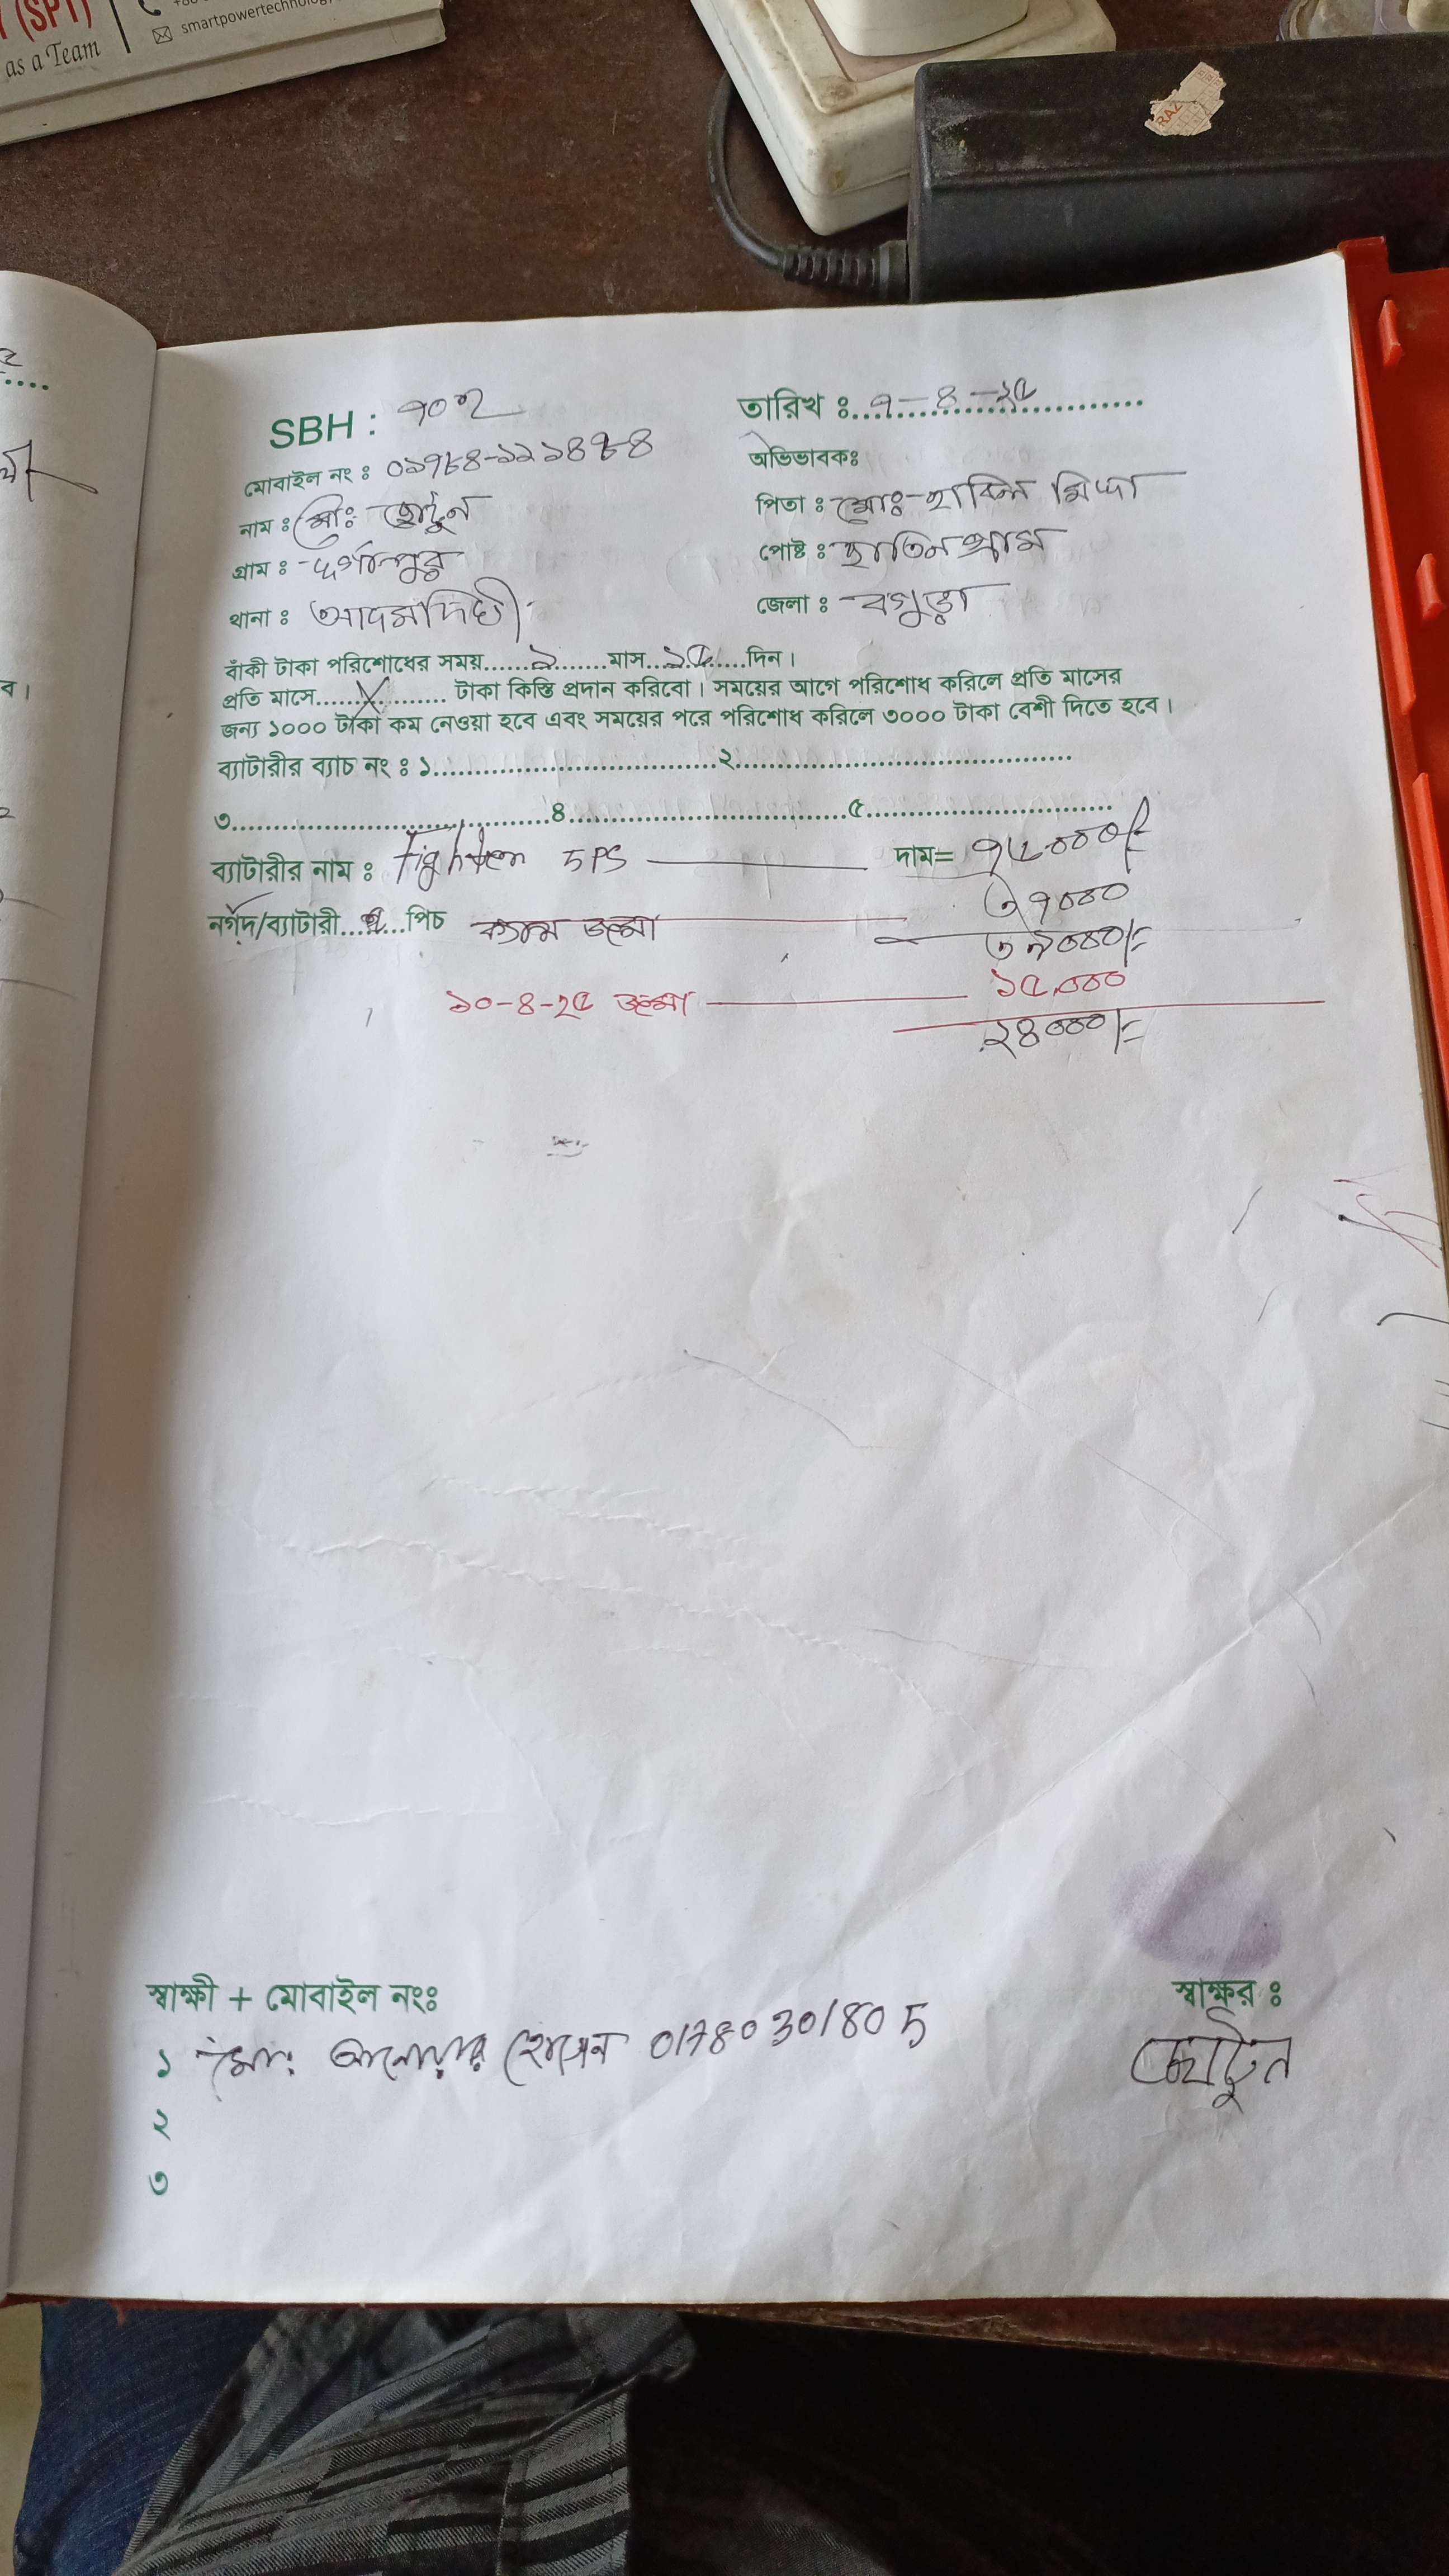 (SPT)
as a Team
smartpowertechnology
RAZ
SBH : ৭০৭২
তারিখ ঃ ৭-৪-২৫
মোবাইল নং ঃ
অভিভাবকঃ
নাম ঃ মোঃ ছোটুন
পিতা ঃ মোঃ হাবিল মিদ্দা
গ্রাম ঃ দূর্গাপুর
পোষ্ট ঃ ছাতিনগ্রাম
থানা ঃ আদমদিঘী
জেলা ঃ বগুড়া
বাঁকী টাকা পরিশোধের সময়.......১.......মাস...১৫.....দিন।
প্রতি মাসে.......X.......... টাকা কিস্তি প্রদান করিবো। সময়ের আগে পরিশোধ করিলে প্রতি মাসের
জন্য ১০০০ টাকা কম নেওয়া হবে এবং সময়ের পরে পরিশোধ করিলে ৩০০০ টাকা বেশী দিতে হবে।
ব্যাটারীর ব্যাচ নং ঃ ১................................২......................................
৩....................................৪................................৫............................
ব্যাটারীর নাম ঃ Fighter 5PS দাম= ৭৫০০০/-
নগদ/ব্যাটারী......পিচ ক্যাশ জমা ৩৭০০০
৩৯০০০/=
১০-৪-২৫ জমা ১৫,০০০
২৪০০০/=
স্বাক্ষী + মোবাইল নংঃ
স্বাক্ষর ঃ
১ মোঃ আনোয়ার হোসেন 01780301805
ছোটুন
২
৩